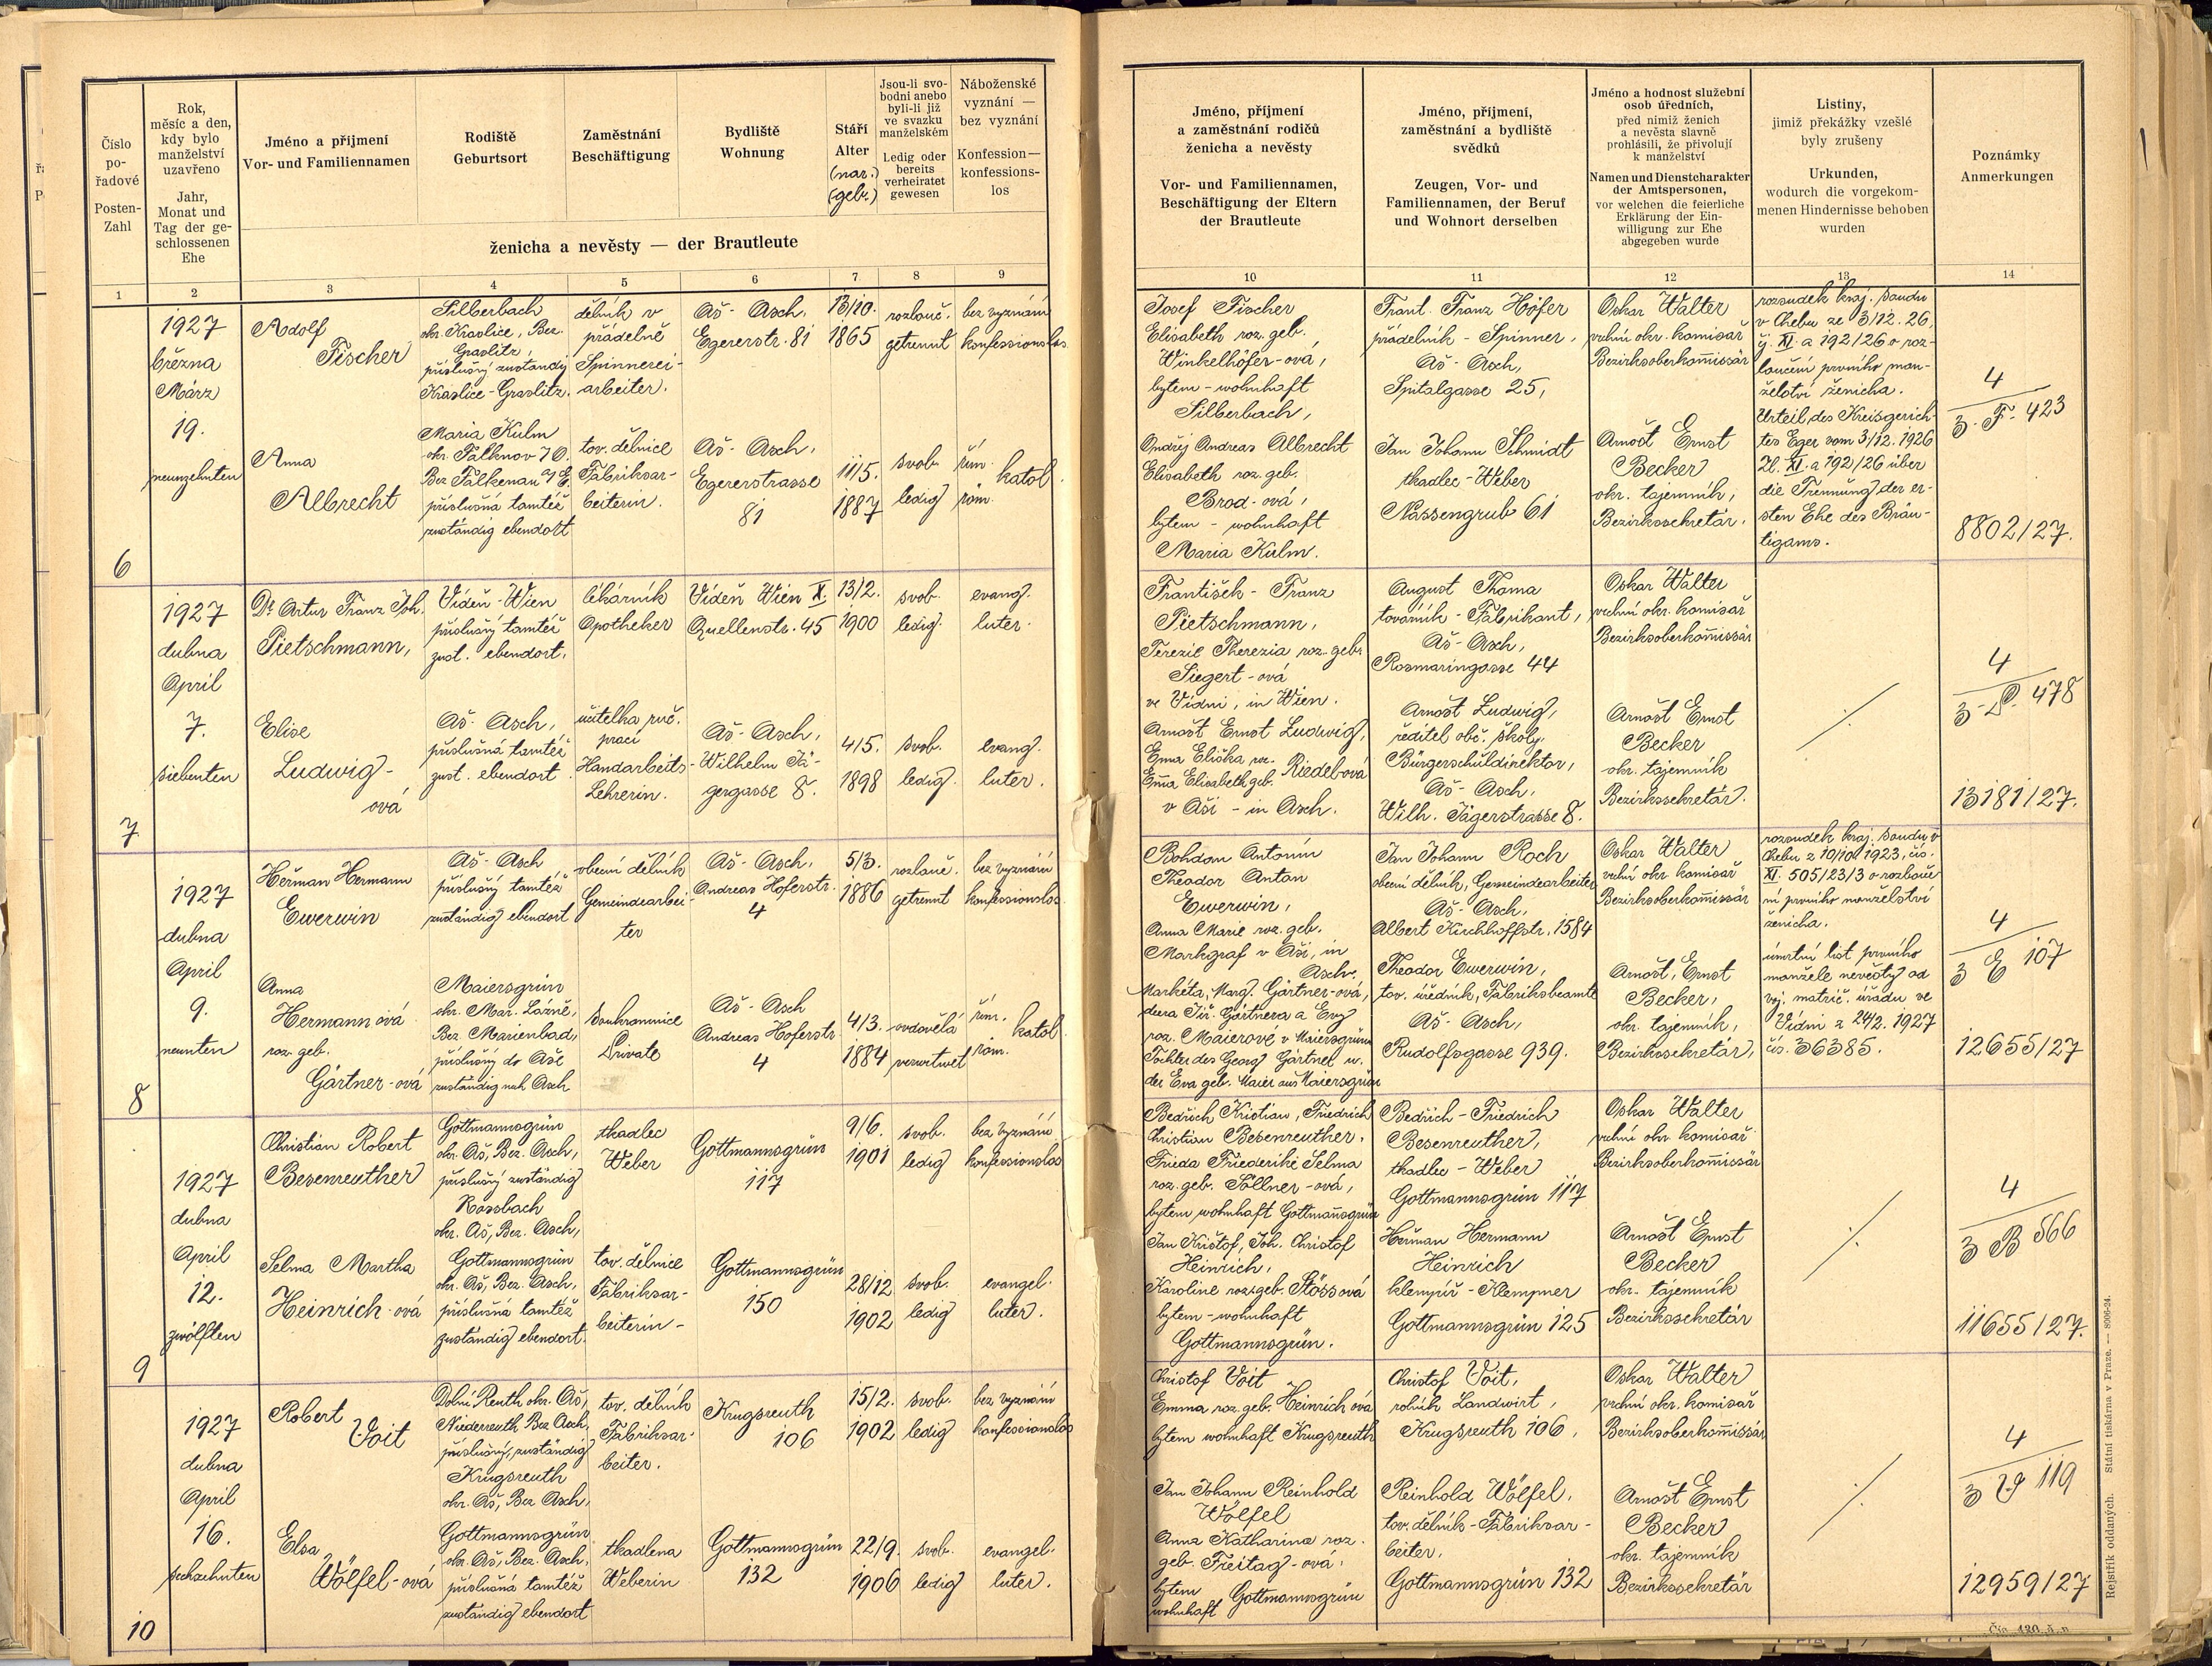 Číslo
po-
řadové
Posten-
Zahl
Rok,
měsíc a den,
kdy bylo
manželství
uzavřeno
Jahr,
Monat und
Tag der ge-
schlossenen
Ehe
Jméno a příjmení
Vor- und Familiennamen
Rodiště
Geburtsort
Zaměstnání
Beschäftigung
Bydliště
Wohnung
Stáří
Alter
(nar.)
(geb.)
Jsou-li svo-
bodni anebo
byli-li již
ve svazku
manželském
Ledig oder
bereits
verheiratet
gewesen
Náboženské
vyznání —
bez vyznání
Konfession—
konfessions-
los
ženicha a nevěsty — der Brautleute
Jméno, příjmení
a zaměstnání rodičů
ženicha a nevěsty
Vor- und Familiennamen,
Beschäftigung der Eltern
der Brautleute
Jméno, příjmení,
zaměstnání a bydliště
svědků
Zeugen, Vor- und
Familiennamen, der Beruf
und Wohnort derselben
Jméno a hodnost služební
osob úředních,
před nimiž ženich
a nevěsta slavně
prohlásili, že přivolují
k manželství
Namen und Dienstcharakter
der Amtspersonen,
vor welchen die feierliche
Erklärung der Ein-
willigung zur Ehe
abgegeben wurde
Listiny,
jimiž překážky vzešlé
byly zrušeny
Urkunden,
wodurch die vorgekom-
menen Hindernisse behoben
wurden
Poznámky
Anmerkungen
1 2 3 4 5 6 7 8 9 10 11 12 13 14
6
1927
března
März
19.
neunzehnten
Adolf
Fischer
Silberbach
okr. Kraslice, Bez.
Graslitz,
příslušný zuständig
Kraslice-Graslitz.
dělník v
přádelně
Spinnerei-
arbeiter.
Aš-Asch,
Egererstr. 81
13/10.
1865
rozlouč.
getrennt
bez vyznání
konfessionslos
Anna
Albrecht
Maria Kulm
okr. Falknov n/O.
Bez Falkenau a/E.
příslušná tamtéž
zuständig ebendort
tov. dělnice
Fabriksar-
beiterin.
Aš-Asch,
Egererstrasse
81
11/5.
1887
svob.
ledig
řím.
röm. katol.
Josef Fischer
Elisabeth roz. geb.
Winkelhöfer-ová,
bytem-wohnhaft
Silberbach,
Ondřej Andreas Albrecht
Elisabeth roz. geb.
Brod-ová,
bytem - wohnhaft
Maria Kulm.
Frant. Franz Höfer
přádelník - Spinner,
Aš-Asch,
Spitalgasse 25,
Jan Johann Schmidt
tkadlec-Weber
Nassengrub 61
Oskar Walter
vrchní okr. komisař
Bezirksoberkom̄issär
Arnošt Ernst
Becker
okr. tajemník,
Bezirkssekretär.
rozsudek kraj. soudu
v Chebu ze 3/12. 26,
č. XI. a 192/26 o roz-
loučení prvního man-
želství ženicha.
Urteil des Kreisgerich-
tes Eger vom 3/12. 1926
Zl. XI. a 192/26 über
die Trennung der er-
sten Ehe des Bräu-
tigams.
4
3. F. 423
8802/27.
7
1927
dubna
April
7.
siebenten
Dr. Artur Franz Joh.
Pietschmann,
Vídeň-Wien
příslušný tamtéž
zust. ebendort.
lékárník
Apotheker
Vídeň Wien X.
Quellenstr. 45
13/2.
1900
svob.
ledig.
evang.
luter.
Elise
Ludwig-
ová
Aš-Asch,
příslušná tamtéž
zust. ebendort.
učitelka ruč.
prací
Handarbeits-
Lehrerin.
Aš-Asch,
Wilhelm Jä-
gergasse 8.
4/5.
1898
svob.
ledig.
evang.
luter.
František - Franz
Pietschmann,
Terezie Therezia roz. geb.
Siegert-ová
ve Vídni, in Wien.
Arnošt Ernst Ludwig,
Ema Eliška roz.
Em̄a Elisabeth geb. Riedelová
v Aši - in Asch.
August Thoma
továrník - Fabrikant,
Aš-Asch,
Rosmaringasse 44
Arnošt Ludwig,
ředitel obč. školy,
Bürgerschuldirektor,
Aš-Asch,
Wilh. Jägerstrasse 8.
Oskar Walter
vrchní okr. komisař
Bezirksoberkom̄issär
Arnošt Ernst
Becker
okr. tajemník
Bezirkssekretär.
4
478
13181/27.
8
1927
dubna
April
9.
neunten
Heřman Hermann
Ewerwin
Aš-Asch
příslušný tamtéž
zuständig ebendort
obecní dělník
Gemeindearbei-
ter
Aš-Asch,
Andreas Hoferstr.
4
5/3.
1886
rozlouč.
getrennt
bez vyznání
konfessionslos
Anna
Hermann ová
roz. geb.
Gärtner-ová
Maiersgrün
okr. Mar. Lázně,
Bez. Marienbad,
příslušný do Aše
zuständig nach Asch
soukromnice
Private
Aš-Asch
Andreas Hoferstr.
4
4/3.
1884
ovdovělá
verwitwet
řím.
röm. katol.
Bohdan Antonín
Theodor Anton
Ewerwin,
Anna Marie roz. geb.
Markgraf v Aši, in
Asch.
Markéta, Marg. Gärtner-ová,
dcera Jiř. Gärtnera a Evy
roz. Maierové v Maiersgrünu
Tochter des Georg Gärtner u.
der Eva geb. Maier aus Maiersgrün
Jan Johann Roch
obecní dělník, Gemeindearbeiter
Aš-Asch,
Albert Kirchhoffstr. 1584
Theodor Ewerwin,
tov. úředník, Fabriksbeamte
Aš-Asch,
Rudolfsgasse 939.
Oskar Walter
vrchní okr. komisař
Bezirksoberkom̄issär
Arnošt, Ernst
Becker,
okr. tajemník,
Bezirkssekretär,
rozsudek kraj. soudu v
Chebu z 10/10. 1923, čís.
XI. 505/23/3 o rozlouče
ní prvního manželství
ženicha.
úmrtní list prvního
manžele nevěsty od
voj. matrič. úřadu ve
Vídni z 24/2. 1927
čís. 36385.
4
3 E 107
12655/27
9
1927
dubna
April
12.
zwölften
Christian Robert
Besenreuther
Gottmannsgrün
okr. Aš, Bez. Asch,
příslušný zuständig
Rossbach
okr. Aš, Bez. Asch,
tkadlec
Weber
Gottmannsgrün
117
9/6.
1901
svob.
ledig
bez vyznání
konfessionslos
Selma Martha
Heinrich-ová
Gottmannsgrün
okr. Aš, Bez. Asch,
příslušná tamtéž
zuständig ebendort.
tov. dělnice
Fabriksar-
beiterin-
Gottmannsgrün
150
28/12
1902
svob.
ledig
evangel.
luter.
Bedřich Kristian, Friedrich
Christian Besenreuther.
Frieda Friederike Selma
roz. geb. Söllner-ová,
bytem wohnhaft Gottman̄sgrün
Jan Krištof, Joh. Christof
Heinrich,
Karoline roz. geb. Stössová
bytem-wohnhaft
Gottmannsgrün.
Bedřich-Friedrich
Besenreuther,
tkadlec-Weber
Gottmannsgrün 117
Heřman Hermann
Heinrich
klempíř-Klempner
Gottmannsgrün 125
Oskar Walter
vrchní okr. komisař
Bezirksoberkom̄issär
Arnošt Ernst
Becker
okr. tajemník
Bezirkssekretär
4
3 B 566
11655/27.
10
1927
dubna
April
16.
sechzehnten
Robert
Voit
Dolní Reuth okr. Aš,
Niederreuth Bez Asch,
příslušný, zuständig
Krugsreuth
okr. Aš, Bez Asch,
tov. dělník
Fabriksar-
beiter.
Krugsreuth
106
15/2.
1902
svob.
ledig
bez vyznání
konfessionslos
Elsa
Wölfel-ová
Gottmannsgrün
okr. Aš, Bez. Asch,
příslušná tamtéž
zuständig ebendort
tkadlena
Weberin
Gottmannsgrün
132
22/9.
1906
svob.
ledig
evangel.
luter.
Christof Voit
Emma roz. geb. Heinrich ová
bytem wohnhaft Krugsreuth
Jan Johann Reinhold
Wölfel
Anna Katharina roz.
geb. Freitag-ová,
bytem
wohnhaft Gottmannsgrün
Christof Voit,
rolník Landwirt,
Krugsreuth 106,
Reinhold Wölfel,
tov. dělník-Fabriksar-
beiter.
Gottmannsgrün 132
Oskar Walter
vrchní okr. komisař
Bezirksoberkom̄issär
Arnošt Ernst
Becker
okr. tajemník
Bezirkssekretär
4
119
12959/27
Rejstřík oddaných. Státní tiskárna v Praze. — 8006-24.